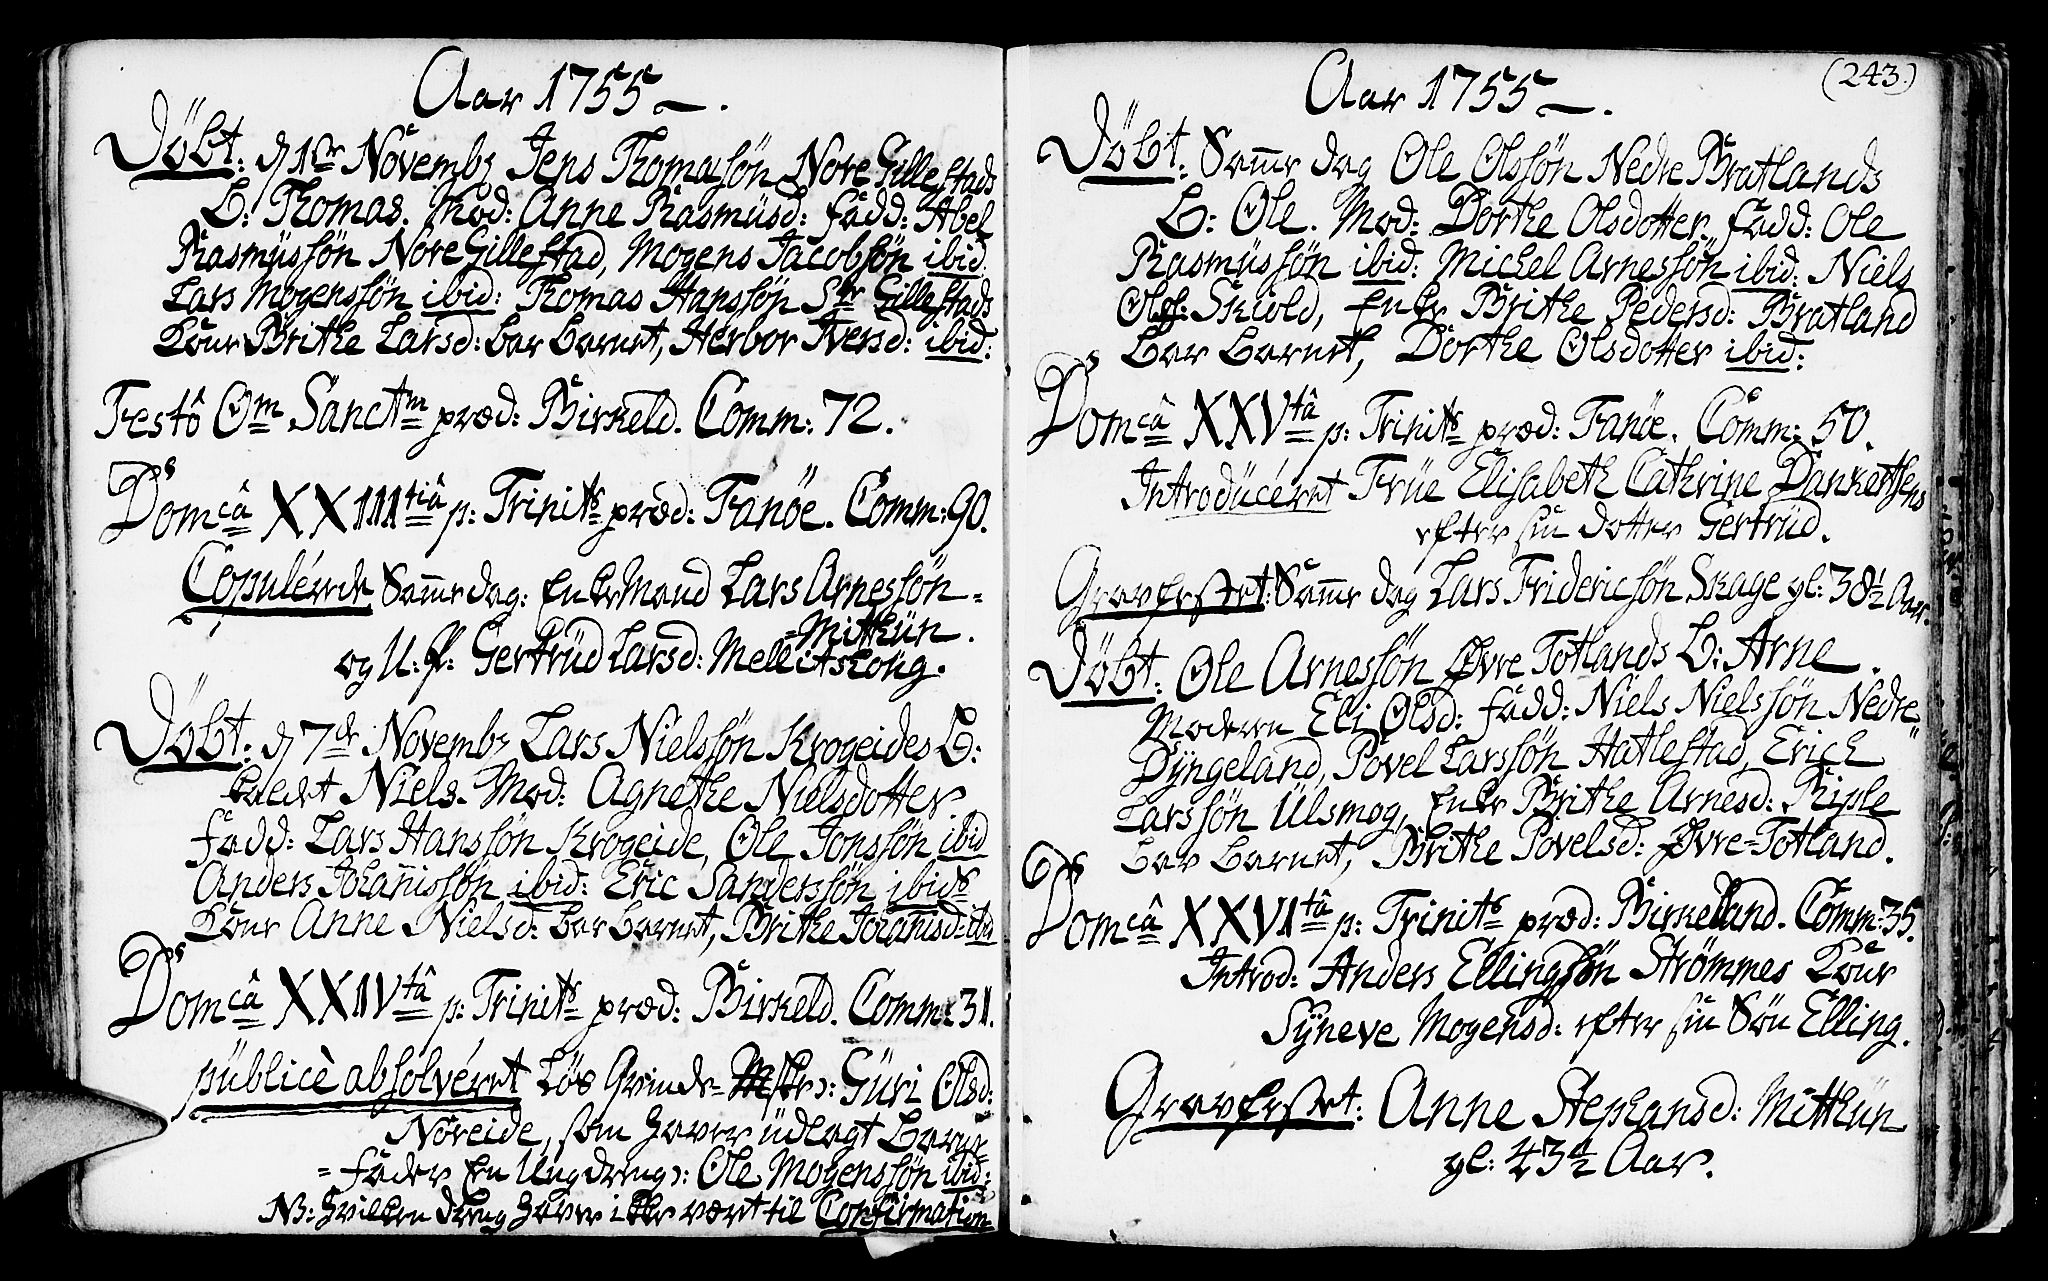 Aar 1755.
Döbt: d 1ste Novembz Jens Thomassön Nore Gillestads
B: Thomas. Mod: Anne Rasmüsd: Fadd: Abel
Rasmüssön Nore Gillestad, Mogens Jacobsön ibid.
Lars Mogenssön ibid: Thomas Hanssön Str Gillestads
Kone Brithe Larsd: bar barnet, Herbor Iversd: ibid:
Festô Om Sanctm præd: Birkeld. Comm: 72.
Domcâ XXIIItiâ p: Trinits præd: Fanöe. Comm: 90.
Copulérede Samme dag: EnkeMand Lars Arnessön=
=Mitthün.
og U: P: Gertrüd Larsd: Mellitskoug.
Döbt: d 7de Novembz Lars Nielssön Krogeides B:
kaldet Niels. Mod: Agnethe Nielsdotter
Fadd: Lars Hanssön Krogeide, Ole Jonssön ibid
Anders Johanissön ibid: Eric Sanderssön ibids
Kone Anne Nielsd: bar barnet, Brithe Johanisd: ibid
Domcâ XXIVtâ p: Trinits præd: Birkeld. Comm: 31.
püblicè absolvéret Løs Qvinde- Güri Olsd:
Nöreide, som haver üdlagt Barne-
=fader En Ungdreng: Ole Mogenssön ibid:
NB: hvilken dreng haver ikke været til Confirmation
Aar 1755.
(243.)
Döbt: Samme dag Ole Olssön Nedre Bratlands
B: Ole. Mod: Dorthe Olsdotter. Fadd: Ole
Rasmüssön ibid: Michel Arnessön ibid: Niels
Olss: Skiold, Enke Brithe Pedersd: Bratland
bar barnet, Dorthe Olsdotter ibid:
Domcâ XXVtâ p: Trinits præd: Fanöe. Comm: 50.
Introdücéret Früe Elisabeth Cathrine Dankertsens
efter sin dotter Gertrüd.
Gravfestet: Samme dag Lars Fridericsön Skage gl: 38½ Aar.
Döbt: Ole Arnessön Øvre Totlands B: Arne.
Moderen Eli Olsd: Fadd: Niels Nielssön Nedre=
Dÿngeland, Povel Larssön Hatlestad, Erich
Larssön Ülsmog, Enke Brithe Arnesd: Riple
bar barnet, Brithe Povelsd: Øvre=Totland.
Domcâ XXVItâ p: Trinits præd: Birkeland. Comm: 35.
Introd: Anders Ellingssön Strömmes Kone
Sÿneve Mogensd: efter sin Sön Elling.
Gravfestet: Anne Stephansd: Mitthün
gl: 43½ Aar.